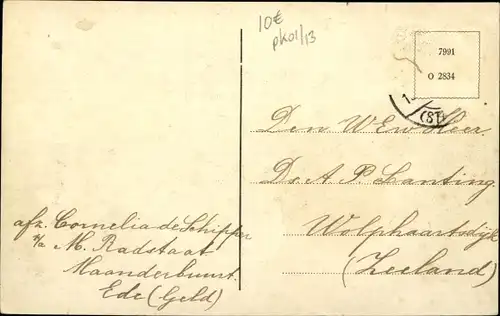 10€
pk01/13
7991
O 2834
(ST
Den WEw Heer
Ds. A. P. Lanting
Wolphaartsdijk
(Zeeland)
afz. Cornelia de Schipper
p/a M. Radstaat
Maanderbuurt.
Ede (Geld)